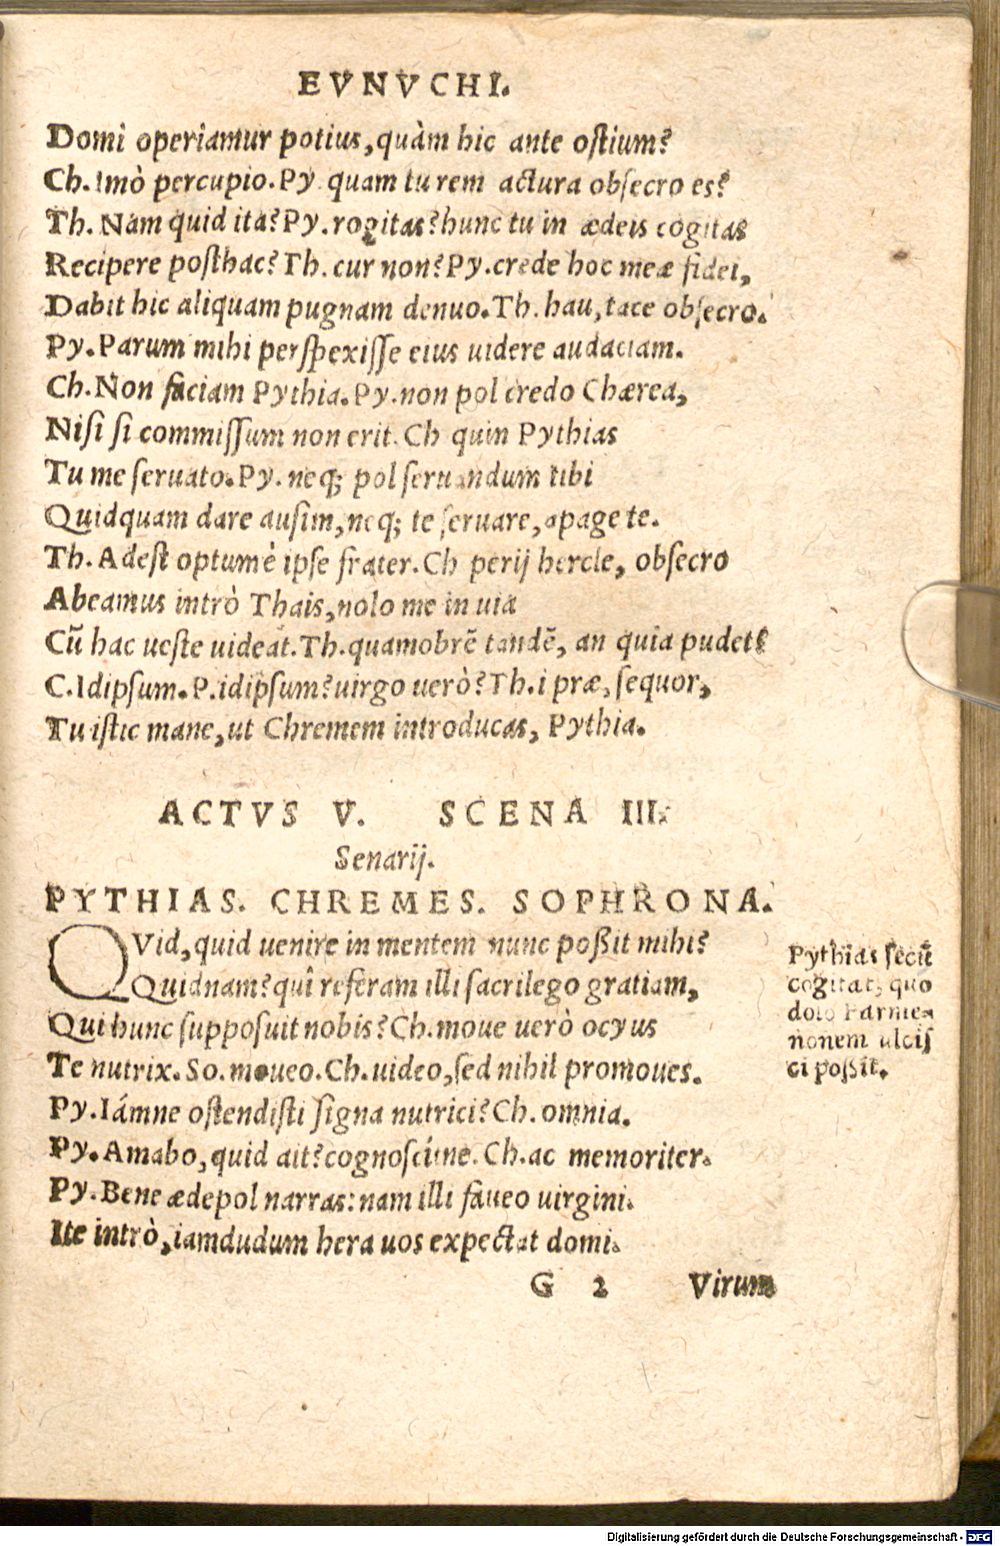 EVNVCHI.
Domi operiamur potius, quàm hic ante ostium?
Ch. Imò percupio. Py. quam tu rem actura obsecro es?
Th. Nam quid ita? Py. rogitas? hunc tu in ædeis cogitas
Recipere posthac? Th. cur non? Py. crede hoc meæ fidei,
Dabit hic aliquam pugnam denuo. Th. hau, tace obsecro.
Py. Parum mihi perspexisse eius uidere audaciam.
Ch. Non faciam Pythia. Py. non pol credo Chærea,
Nisi si commissum non erit. Ch quin Pythias
Tu me seruato. Py. neq; pol seruandum tibi
Quidquam dare ausim, neq; te seruare, apage te.
Th. Adest optumè ipse frater. Ch perij hercle, obsecro
Abeamus intrò Thais, nolo me in uia
Cũ hac ueste uideat. Th. quamobrẽ tandẽ, an quia pudet?
C. Idipsum. P. idipsum? uirgo uerò? Th. i præ, sequor,
Tu istic mane, ut Chremem introducas, Pythia.
ACTVS V. SCENA III.
Senarij.
PYTHIAS. CHREMES. SOPHRONA.
QVid, quid uenire in mentem nunc poßit mihi?
Quidnam? quî referam illi sacrilego gratiam,
Qui hunc supposuit nobis? Ch. moue uerò ocyus
Te nutrix. So. moueo. Ch. uideo, sed nihil promoues.
Py. Iámne ostendisti signa nutrici? Ch. omnia.
Py. Amabo, quid ait? cognoscítne. Ch. ac memoriter.
Py. Bene ædepol narras: nam illi faueo uirgini.
Ite intrò, iamdudum hera uos expectat domi.
Pythias secũ
cogitat, quo
dolo Parme-
nonem ulcis
ci poßit.
G 2 Virum
Digitalisierung gefördert durch die Deutsche Forschungsgemeinschaft - DFG